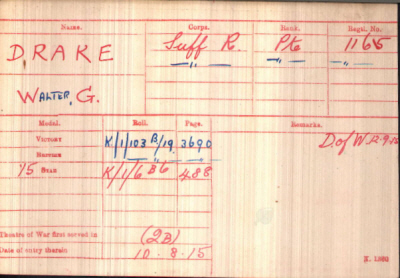 Name. Corps. Rank. Regtl. No.
DRAKE Suff R. Pte 1165
—"— —"— —"—
WALTER, G.
Medal. Roll. Page. Remarks.
VICTORY K/1/103 B/19. 3690 D of W 12-9-15
BRITISH —"— —"—
15 STAR K/1/6 B6 488
Theatre of War first served in (2B)
Date of entry therein 10-8-15
K. 1380